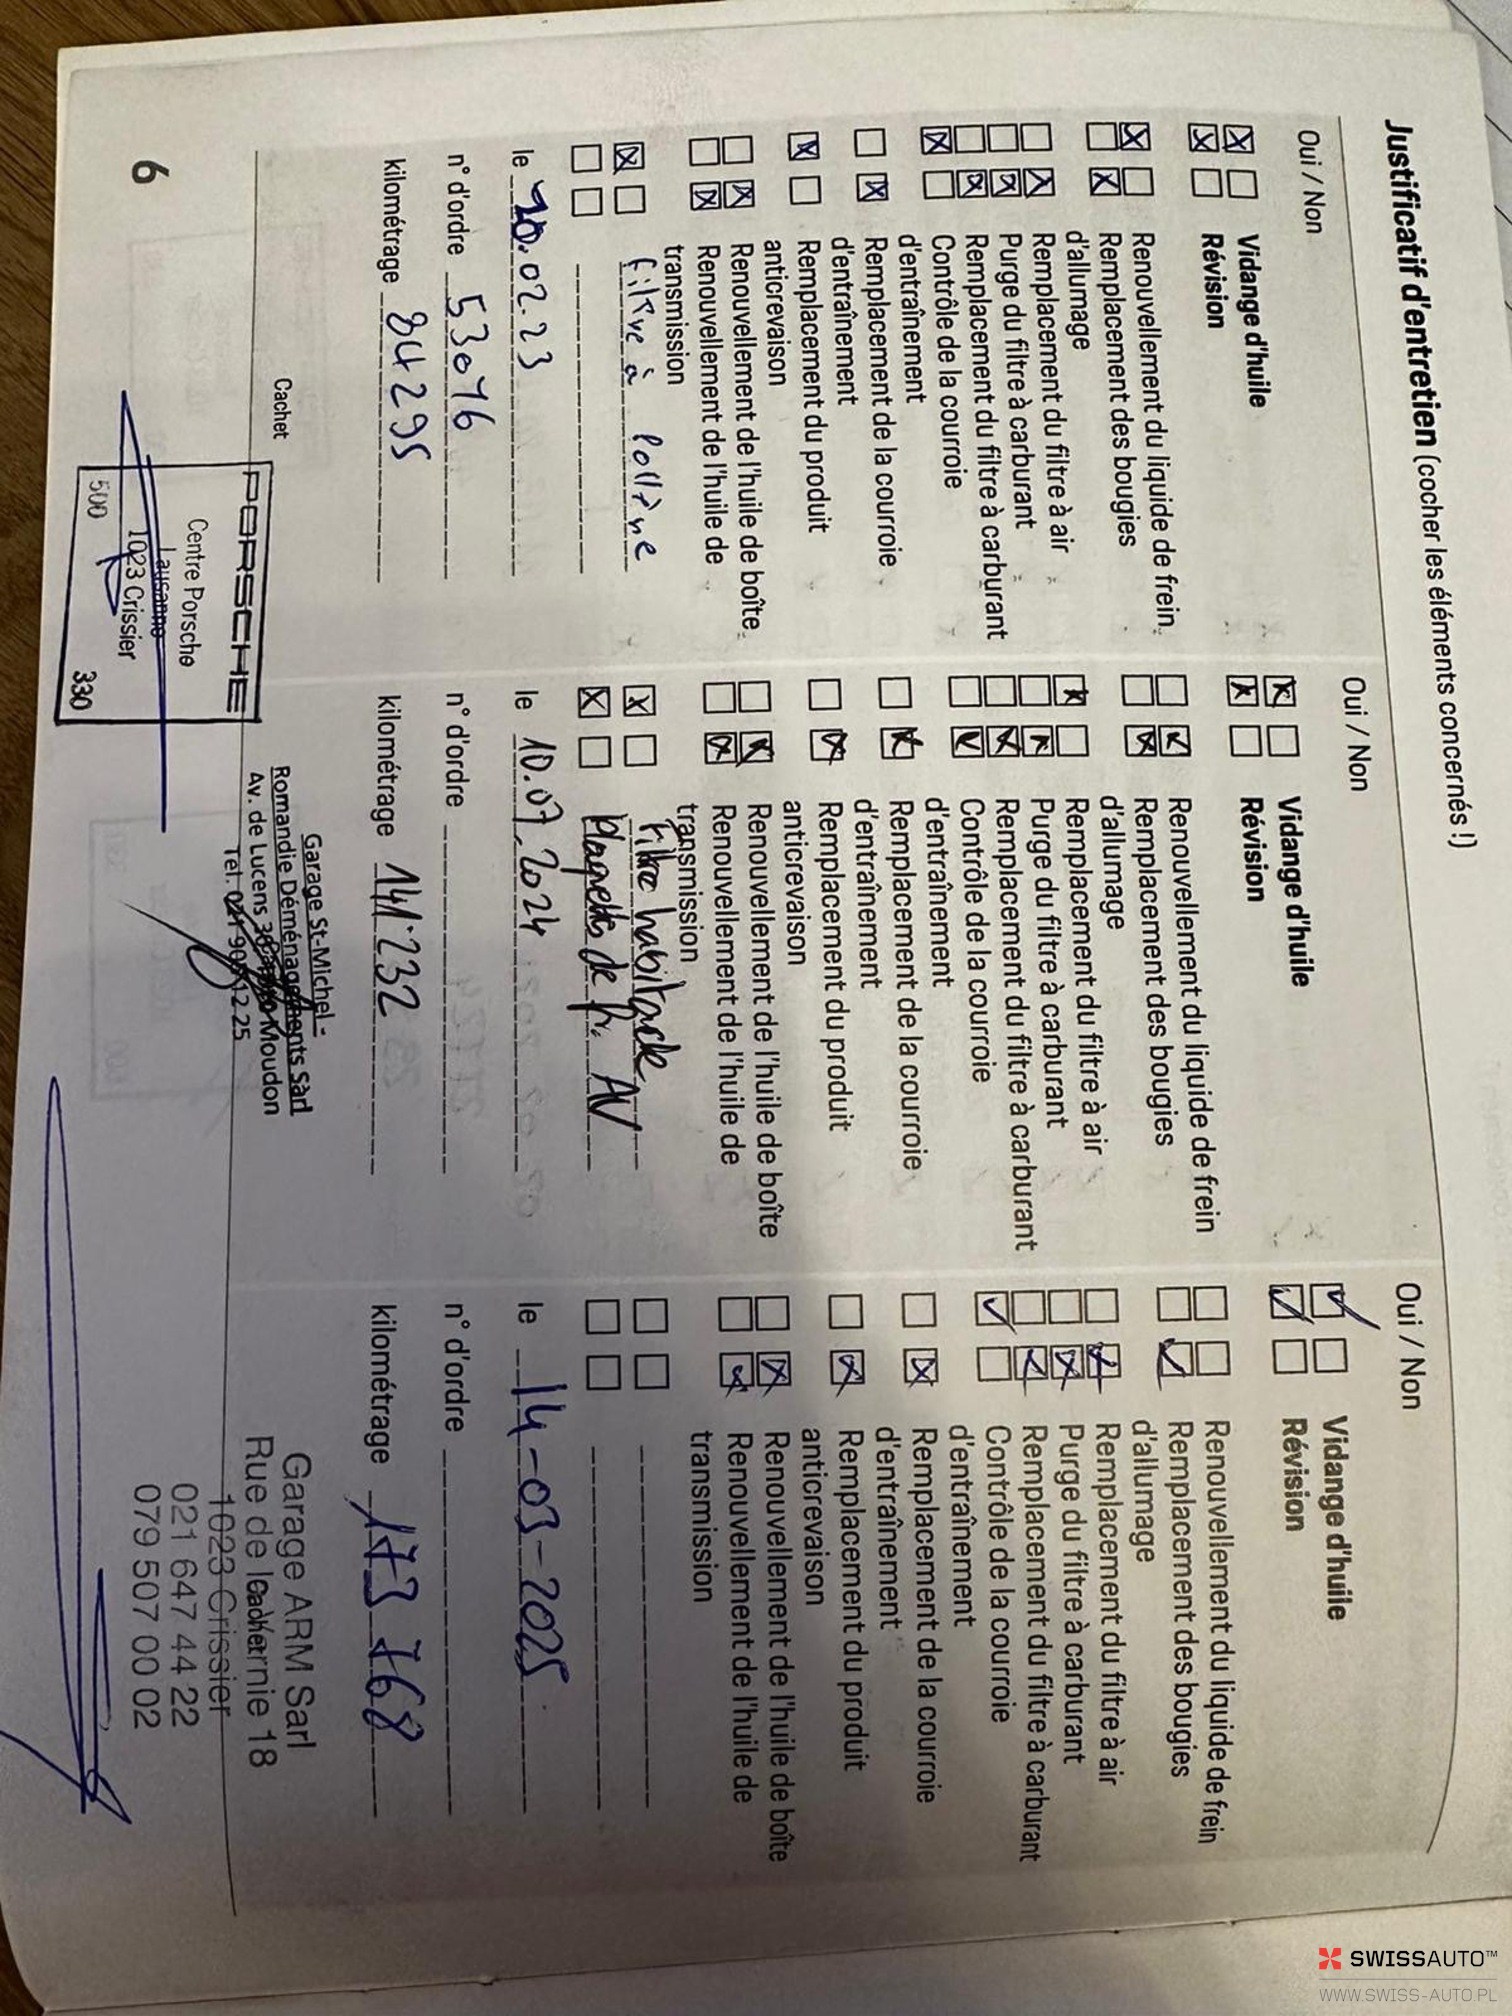 Justificatif d'entretien (cocher les éléments concernés !)
Oui / Non
Vidange d'huile
Révision
Renouvellement du liquide de frein
Remplacement des bougies
d'allumage
Remplacement du filtre à air
Purge du filtre à carburant
Remplacement du filtre à carburant
Contrôle de la courroie
d'entraînement
Remplacement de la courroie
d'entraînement
Remplacement du produit
anticrevaison
Renouvellement de l'huile de boîte
Renouvellement de l'huile de
transmission
filtre à pollène
le 20.02.23
n° d'ordre 53076
kilométrage 84295
Cachet
PORSCHE
Centre Porsche
Lausanne
1023 Crissier
500 330
6
Oui / Non
Vidange d'huile
Révision
Renouvellement du liquide de frein
Remplacement des bougies
d'allumage
Remplacement du filtre à air
Purge du filtre à carburant
Remplacement du filtre à carburant
Contrôle de la courroie
d'entraînement
Remplacement de la courroie
d'entraînement
Remplacement du produit
anticrevaison
Renouvellement de l'huile de boîte
Renouvellement de l'huile de
transmission
filtre habitacle
plaquettes de fr. AV
le 10.07.2024
n° d'ordre
kilométrage 141.232
Garage St-Michel -
Romandie Déménagements Sàrl
Av. de Lucens Moudon
Tél. 12 25
Oui / Non
Vidange d'huile
Révision
Renouvellement du liquide de frein
Remplacement des bougies
d'allumage
Remplacement du filtre à air
Purge du filtre à carburant
Remplacement du filtre à carburant
Contrôle de la courroie
d'entraînement
Remplacement de la courroie
d'entraînement
Remplacement du produit
anticrevaison
Renouvellement de l'huile de boîte
Renouvellement de l'huile de
transmission
le 14-03-2025
n° d'ordre
kilométrage 173 768
Garage ARM Sarl
Rue de 18
1023 Crissier
021 647 44 22
079 507 00 02
SWISSAUTO™
WWW.SWISS-AUTO.PL